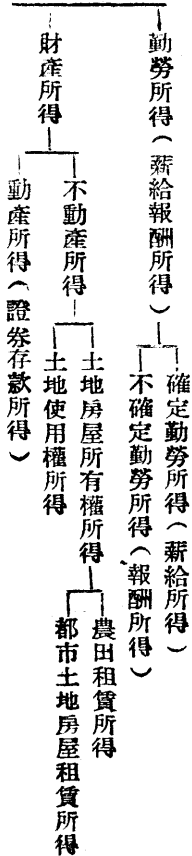 勤勞所得(薪給報酬所得)
確定勤勞所得(薪給所得)
不確定勤勞所得(報酬所得)
財產所得
不動產所得
土地房屋所有權所得
農田租賃所得
都市土地房屋租賃所得
土地使用權所得
動產所得(證券存款所得)